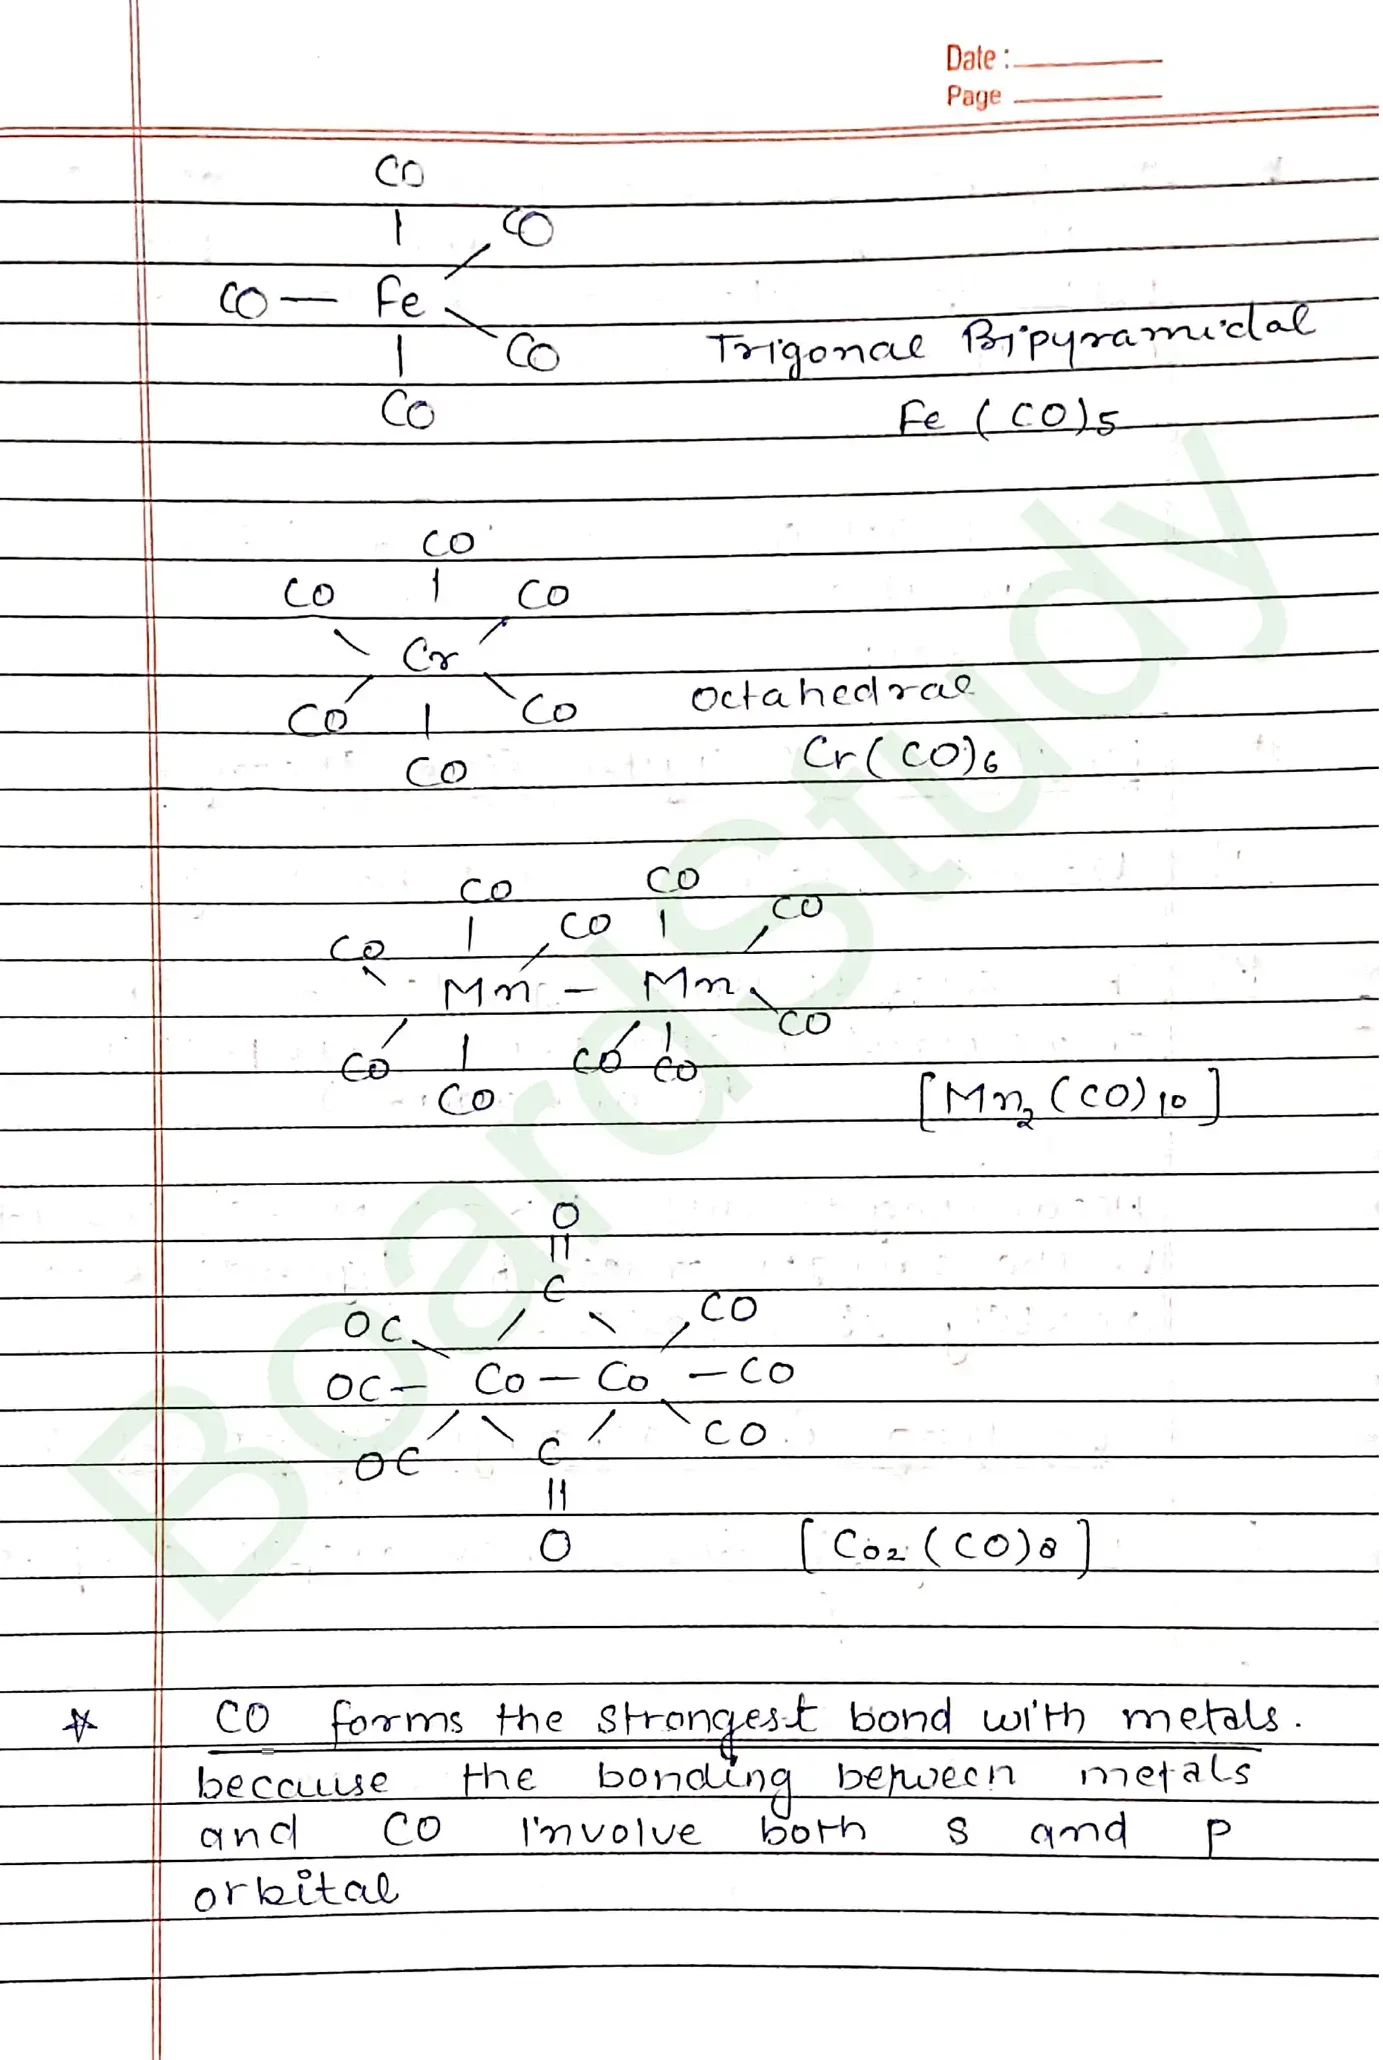 Date :
Page
CO
CO
CO — Fe
CO
Trigonal Bipyramidal
CO
Fe (CO)5
CO
CO CO
Cr
CO CO
Octahedral
CO
Cr(CO)6
CO CO
CO CO CO
Mn - Mn
CO
CO CO CO
CO
[Mn2 (CO)10]
O
||
C
OC CO
OC — Co — Co — CO
OC C CO
||
O
[Co2 (CO)8]
☆ CO forms the strongest bond with metals.
because the bonding between metals
and CO involve both s and p
orbital
BoardStudy